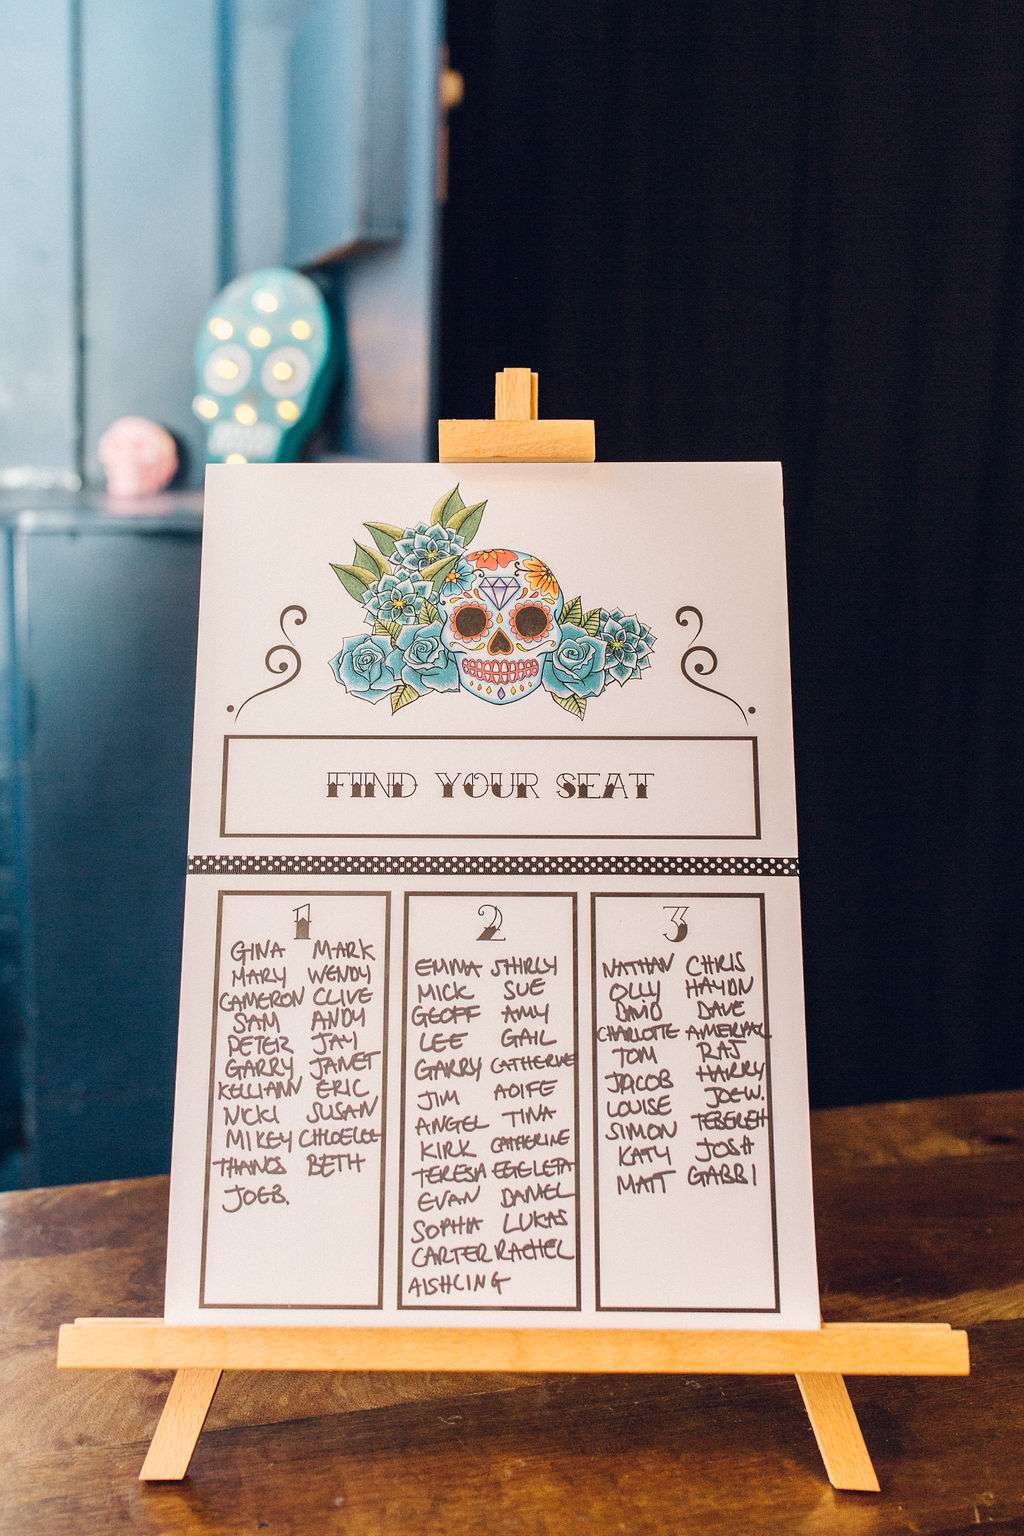 FIND YOUR SEAT
1
GINA MARK
MARY WENDY
CAMERON CLIVE
SAM ANDY
PETER JAY
GARRY JANET
KELLIANN ERIC
NICKI SUSAN
MIKEY CHLOELEE
THANOS BETH
JOEB.
2
EMMA SHIRLY
MICK SUE
GEOFF AMY
LEE GAIL
GARRY CATHERINE
JIM AOIFE
ANGEL TINA
KIRK CATHERINE
TERESA EGELETA
EVAN DANIEL
SOPHIA LUKAS
CARTER RACHEL
AISHLING
3
NATHAN CHRIS
OLLY HAYDN
DAVID DAVE
CHARLOTTE
TOM RAJ
JACOB HARRY
LOUISE JOEW.
SIMON TEBEREH
KATY JOSH
MATT GABBI